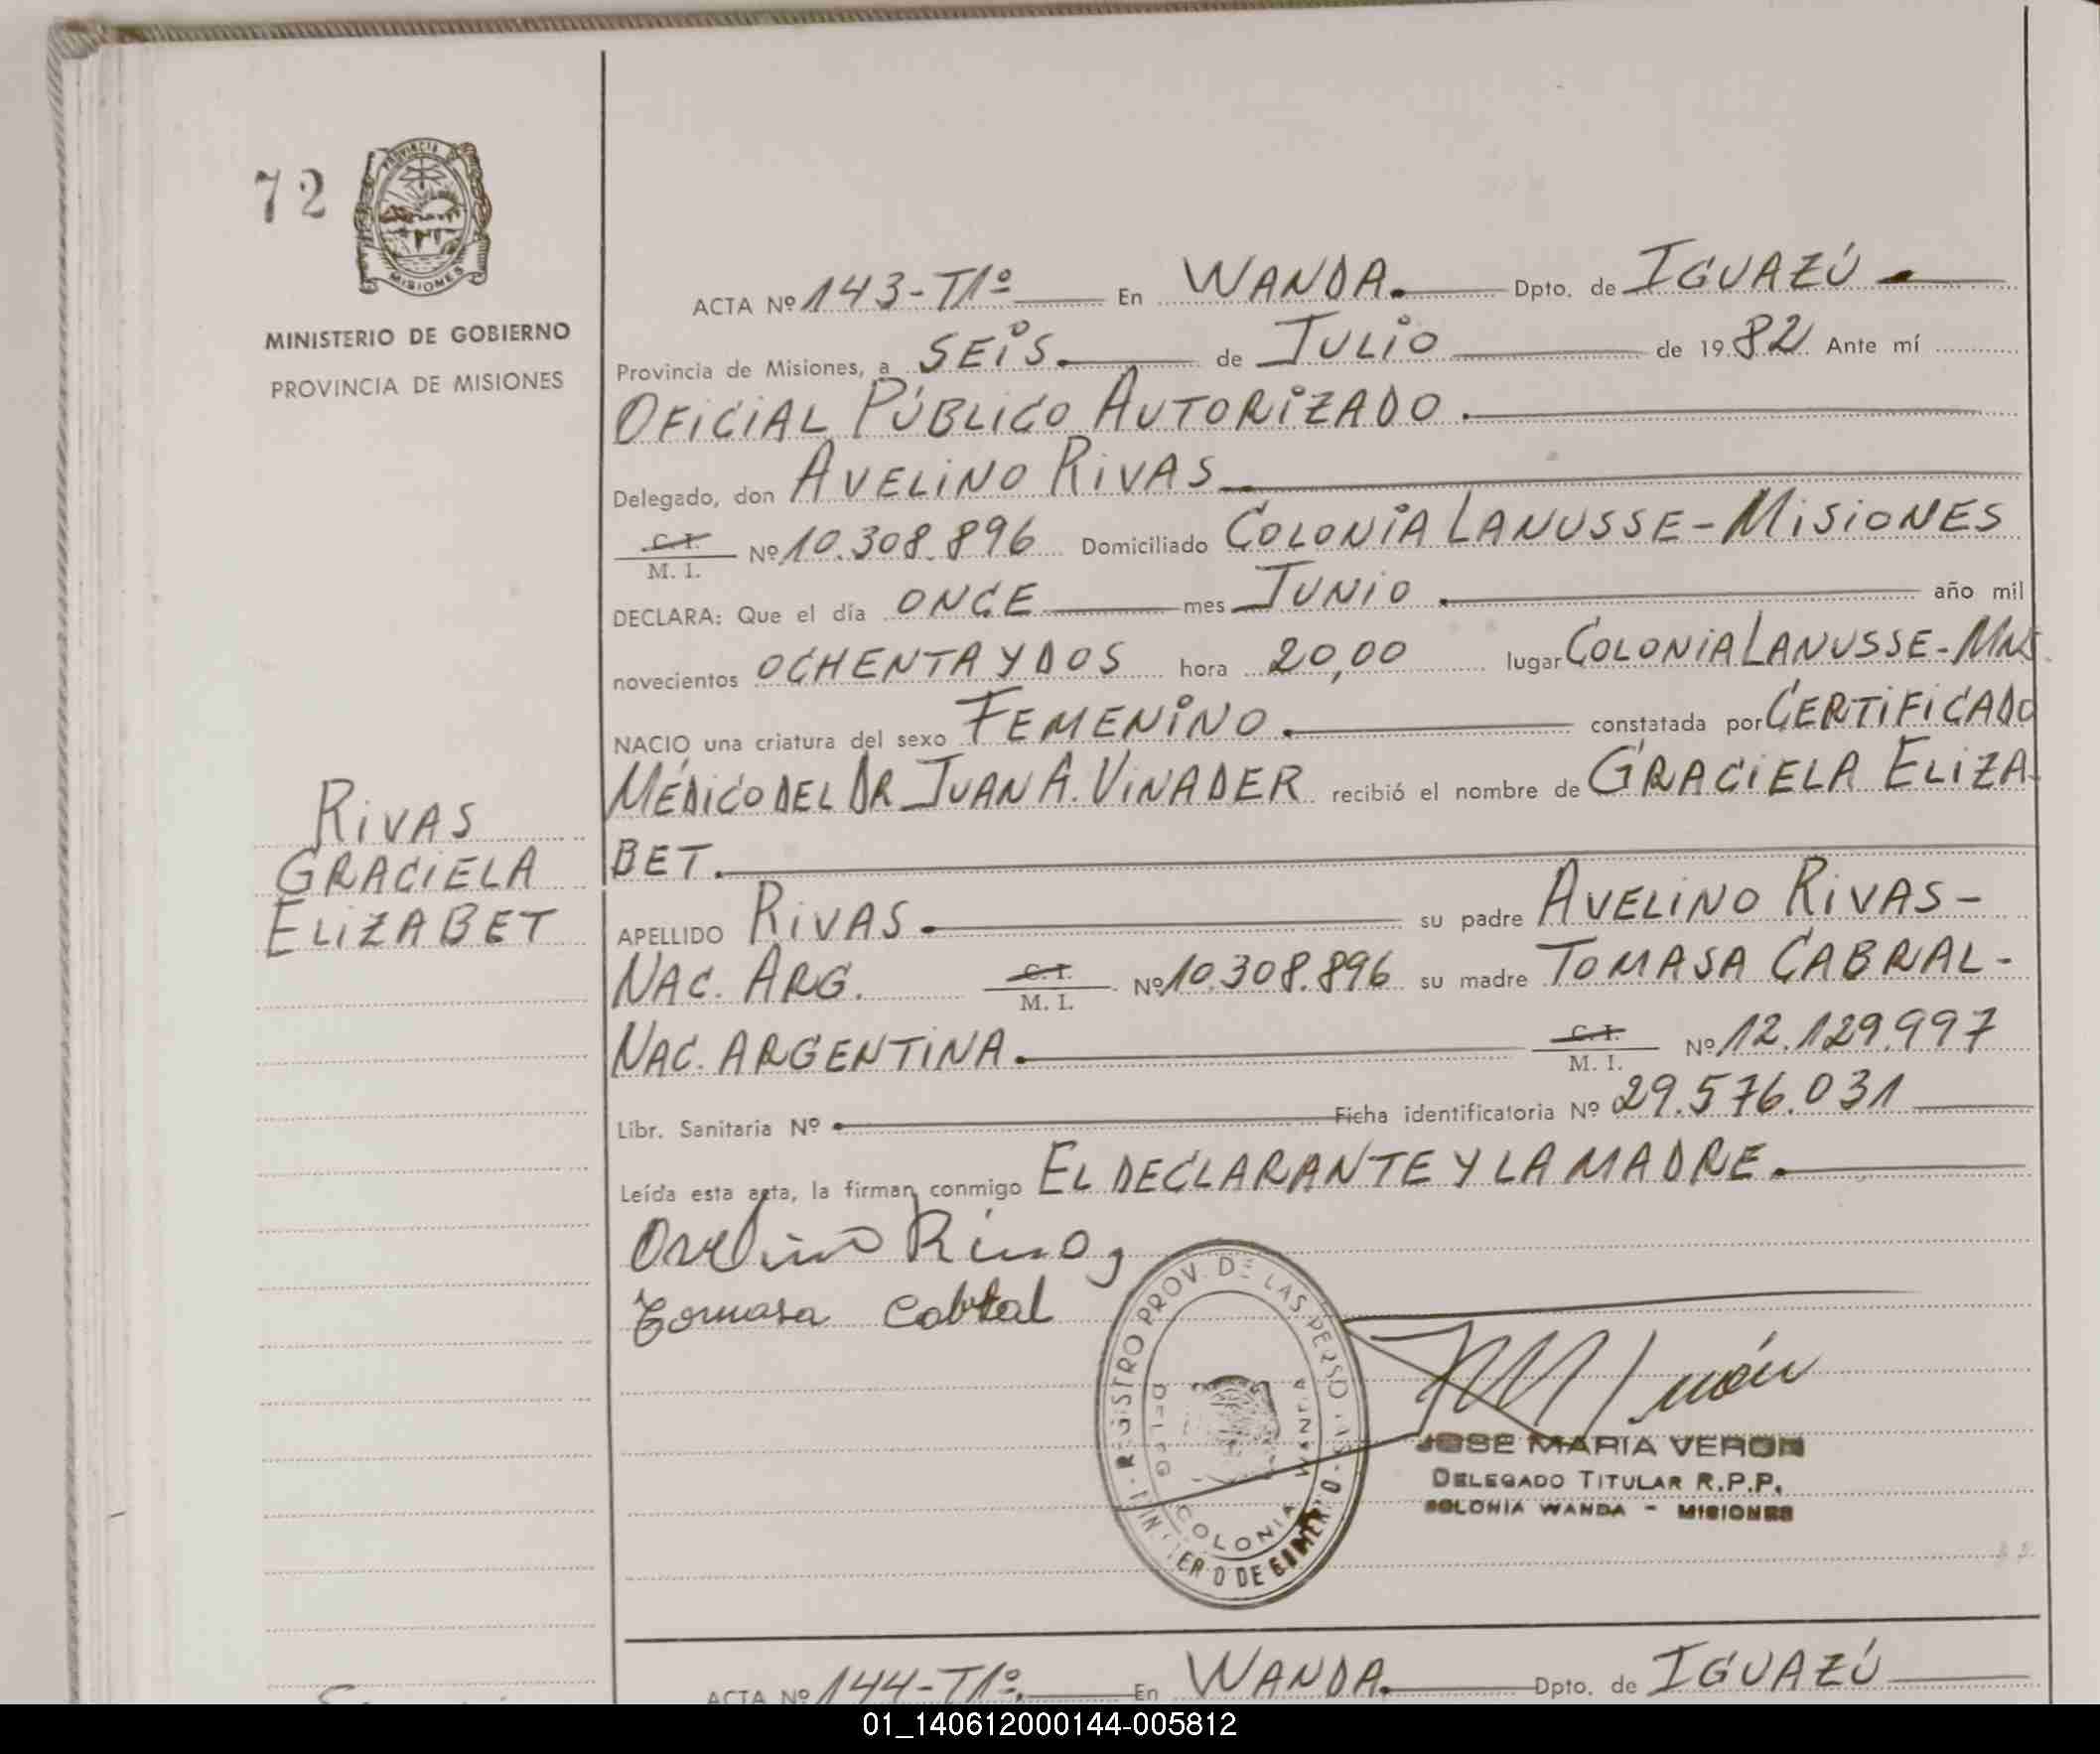 72
PROVINCIA DE
MISIONES
MINISTERIO DE GOBIERNO
PROVINCIA DE MISIONES
RIVAS
GRACIELA
ELIZABET
ACTA Nº 143-T1º En WANDA. Dpto. de IGUAZÚ
Provincia de Misiones, a SEIS. de JULIO de 1982 Ante mí
OFICIAL PÚBLICO AUTORIZADO.
Delegado, don AVELINO RIVAS
C. I.
M. I. Nº 10.308.896 Domiciliado COLONIA LANUSSE-MISIONES
DECLARA: Que el día ONCE mes JUNIO. año mil
novecientos OCHENTA Y DOS hora 20,00 lugar COLONIA LANUSSE-MNS
NACIO una criatura del sexo FEMENINO. constatada por CERTIFICADO
MÉDICO DEL DR JUAN A. VINADER recibió el nombre de GRACIELA ELIZA
BET.
APELLIDO RIVAS. su padre AVELINO RIVAS-
NAC. ARG. C. I. M. I. Nº 10.308.896 su madre TOMASA CABRAL-
NAC. ARGENTINA. C. I. M. I. Nº 12.129.997
Libr. Sanitaria Nº Ficha identificatoria Nº 29.576.031
Leída esta acta, la firman conmigo EL DECLARANTE Y LA MADRE.
Tomasa Cabral
REGISTRO PROV. DE LAS PERSONAS
DELEG
COLONIA WANDA
JOSE MARIA VERON
DELEGADO TITULAR R.P.P.
COLONIA WANDA - MISIONES
ACTA Nº 144-T1º. En WANDA. Dpto. de IGUAZÚ
01_140612000144-005812